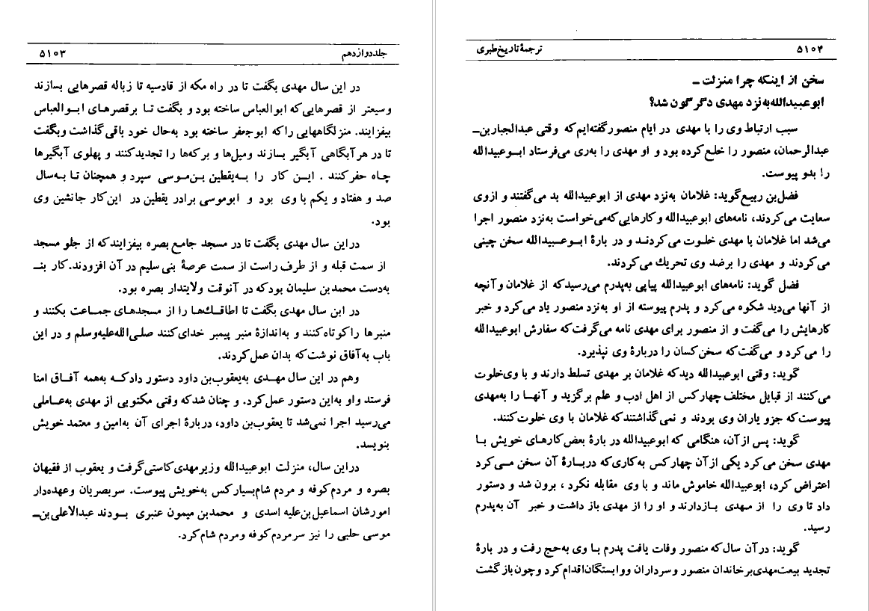 جلددوازدهم ۵۱۰۳
در این سال مهدی بگفت تا در راه مکه از قادسیه تا زباله قصرهایی بسازند
وسیعتر از قصرهایی که ابوالعباس ساخته بود و بگفت تا برقصرهای ابوالعباس
بیفزایند. منزلگاههایی را که ابوجعفر ساخته بود به‌حال خود باقی گذاشت وبگفت
تا در هر آبگاهی آبگیر بسازند ومیل‌ها و برکه‌ها را تجدیدکنند و پهلوی آبگیرها
چاه حفرکنند . ایـن کار را به‌یقطین بن‌موسی سپرد و همچنان تا به‌سال
صد و هفتاد و یکم با وی بود و ابوموسی برادر یقطین در این‌کار جانشین وی
بود.
دراین سال مهدی بگفت تا در مسجد جامع بصره بیفزایندکه از جلو مسجد
از سمت قبله و از طرف راست از سمت عرصهٔ بنی سلیم در آن افزودند. کار بنـ
به‌دست محمدبن سلیمان بودکه در آنوقت ولایتدار بصره بود.
در این سال مهدی بگفت تا اطاقك‌ها را از مسجدهای جماعت بکنند و
منبرها را کوتاه‌کنند و به‌اندازهٔ منبر پیمبر خدای‌کنند صلی‌الله‌علیه‌وسلم و در این
باب به‌آفاق نوشت‌که بدان عمل‌کردند.
وهم در این سال مهـدی به‌یعقوب‌بن داود دستور دادکـه به‌همه آفـاق امنا
فرستد واو به‌این دستور عمل‌کرد. و چنان شدکه وقتی مکتوبی از مهدی به‌عـاملی
می‌رسید اجرا نمی‌شد تا یعقوب‌بن داود، دربارهٔ اجرای آن به‌امین و معتمد خویش
بنویسد.
دراین سال، منزلت ابوعبیدالله وزیرمهدی‌کاستی‌گرفت و یعقوب از فقیهان
بصره و مردم‌کوفه و مردم شام‌بسیارکس به‌خویش پیوست. سربصریان وعهده‌دار
امورشان اسماعیل‌بن‌علیه اسدی و محمدبن میمون عنبری بـودند عبدالاعلی بن‌ـ
موسی حلبی را نیز سرمردم کوفه ومردم شام‌کرد.
۵۱۰۴ ترجمهٔ تاریخ طبری
سخن از اینکه چرا منزلت ـ
ابوعبیدالله به‌نزد مهدی دگرگون شد؟
سبب ارتباط وی را با مهدی در ایام منصور گفته‌ایم که وقتی عبدالجباربن‌ـ
عبدالرحمان، منصور را خلع‌کرده بود و او مهدی را به‌ری می‌فرستاد ابـوعبیدالله
را بدو پیوست.
فضل‌بن ربیع‌گوید: غلامان به‌نزد مهدی از ابوعبیدالله بد می‌گفتند و ازوی
سعایت می‌کردند، نامه‌های ابوعبیدالله و کارهایی‌که‌می‌خواست به‌نزد منصور اجرا
می‌شد اما غلامان با مهدی خلوت می‌کردنـد و در بارهٔ ابـوعبیدالله سخن چینی
می‌کردند و مهدی را برضد وی تحریك می‌کردند.
فضل گوید: نامه‌های ابوعبیدالله پیاپی به‌پدرم می‌رسیدکه از غلامان وآنچه
از آنها می‌دید شکوه می‌کرد و پدرم پیوسته از او به‌نزد منصور یاد می‌کرد و خبر
کارهایش را می‌گفت و از منصور برای مهدی نامه می‌گرفت‌که سفارش ابوعبیدالله
را می‌کرد و می‌گفت‌که سخن کسان را دربارهٔ وی نپذیرد.
گوید: وقتی ابوعبیدالله دیدکه غلامان بر مهدی تسلط دارند و با وی‌خلوت
می‌کنند از قبایل مختلف چهارکس از اهل ادب و علم برگزید و آنهـا را به‌مهدی
پیوست‌که جزو یاران وی بودند و نمی‌گذاشتندکه غلامان با وی خلوت‌کنند.
گوید: پس ازآن، هنگامی که ابوعبیدالله در بارهٔ بعض‌کارهای خویش بـا
مهدی سخن می‌کرد یکی ازآن چهارکس به‌کاری‌که دربـارهٔ آن سخن مـی‌کرد
اعتراض کرد، ابوعبیدالله خاموش ماند و با وی مقابله نکرد ، برون شد و دستور
داد تا وی را از مـهدی بـازدارند و او را از مهدی باز داشت و خبر آن به‌پدرم
رسید.
گوید: درآن سال‌که منصور وفات یافت پدرم بـا وی به‌حج رفت و در بارهٔ
تجدید بیعت‌مهدی‌برخاندان منصور و سرداران ووابستگان‌اقدام‌کرد وچون بازگشت